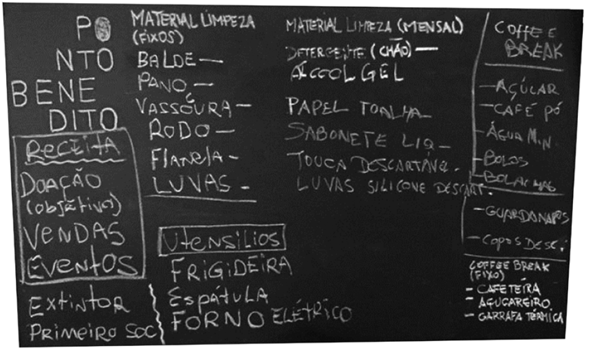 PONTO
BENE
DITO
RECEITA
DOAÇÃO
(OBJETIVO)
VENDAS
EVENTOS
EXTINTOR
PRIMEIRO SOC
MATERIAL LIMPEZA
(FIXOS)
BALDE —
PANO —
VASSOURA —
RODO —
FLANELA —
LUVAS —
UTENSILIOS
FRIGIDEIRA
ESPÁTULA
FORNO ELÉTRICO
MATERIAL LIMPEZA (MENSAL)
DETERGENTE (CHÃO) —
ÁLCOOL GEL
PAPEL TOALHA —
SABONETE LIQ —
TOUCA DESCARTÁVEL -
LUVAS SILICONE DESCART.
COFFEE
BREAK
— AÇÚCAR
— CAFÉ PÓ
— ÁGUA MIN.
— BOLOS
— BOLACHAS
— GUARDANAPOS
— COPOS DESC.
COFFEE BREAK
(FIXO)
- CAFETEIRA
- AÇUCAREIRO
- GARRAFA TÉRMICA